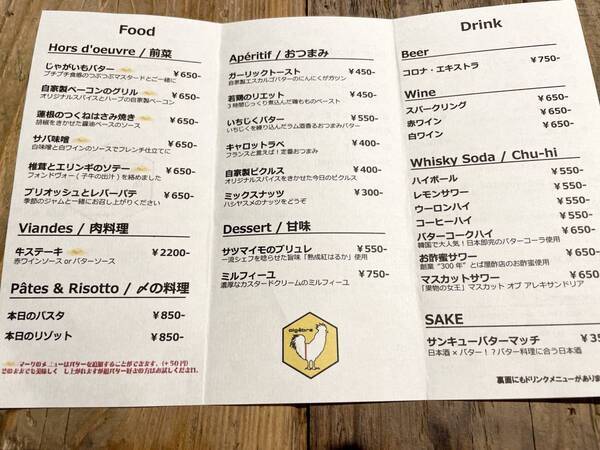 Food
Hors d'oeuvre / 前菜
じゃがいもバター ￥650-
プチプチ食感のつぶつぶマスタードとご一緒に
自家製ベーコンのグリル ￥650-
オリジナルスパイスとハーブの自家製ベーコン
蓮根のつくねはさみ焼き ￥650-
胡椒をきかせた醤油ベースのソース
サバ味噌 ￥650-
白味噌と白ワインのソースでフレンチ仕立てに
椎茸とエリンギのソテー ￥650-
フォンドヴォー（子牛の出汁）を絡めました
ブリオッシュとレバーパテ ￥650-
季節のジャムと一緒にお召し上がりください
Viandes / 肉料理
牛ステーキ ￥2200-
赤ワインソース or バターソース
Pâtes & Risotto / 〆の料理
本日のパスタ ￥850-
本日のリゾット ￥850-
マークのメニューはバターを追加することができます。(+50円)
そのままでも美味しく し上がれますが超バター好きの方はお試しください。
Apéritif / おつまみ
ガーリックトースト ￥450-
自家製エスカルゴバターのにんにくがガツン
若鶏のリエット ￥450-
3時間じっくり煮込んだ鶏もものペースト
いちじくバター ￥550-
いちじくを練り込んだラム酒香るおつまみバター
キャロットラペ ￥400-
フランスと言えば！定番おつまみ
自家製ピクルス ￥400-
オリジナルスパイスをきかせた今日のピクルス
ミックスナッツ ￥300-
ハシヤスメのナッツをどうぞ
Dessert / 甘味
サツマイモのブリュレ ￥550-
一流シェフを唸らせた旨味「熟成紅はるか」使用
ミルフィーユ ￥750-
濃厚なカスタードクリームのミルフィーユ
algèbre
Drink
Beer
コロナ・エキストラ ￥750-
Wine
スパークリング ￥650-
赤ワイン ￥650-
白ワイン ￥650-
Whisky Soda / Chu-hi
ハイボール ￥550-
レモンサワー ￥550-
ウーロンハイ ￥550-
コーヒーハイ ￥550-
バターコークハイ ￥650-
韓国で大人気！日本即完のバターコーラ使用
お酢蜜サワー ￥650-
創業“300年”とば屋酢店のお酢蜜使用
マスカットサワー ￥650-
「果物の女王」マスカット オブ アレキサンドリア
SAKE
サンキューバターマッチ ￥35
日本酒×バター！？バター料理に合う日本酒
裏面にもドリンクメニューがありま